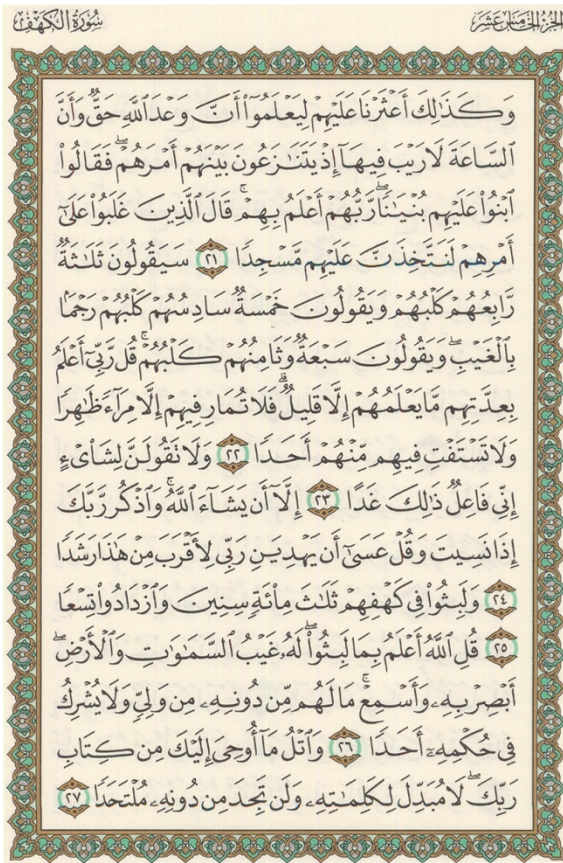 الجزء الخامس عشر
سورة الكهف
وَكَذَٰلِكَ أَعْثَرْنَا عَلَيْهِمْ لِيَعْلَمُوٓا۟ أَنَّ وَعْدَ ٱللَّهِ حَقٌّ وَأَنَّ
ٱلسَّاعَةَ لَا رَيْبَ فِيهَآ إِذْ يَتَنَٰزَعُونَ بَيْنَهُمْ أَمْرَهُمْ ۖ فَقَالُوا۟
ٱبْنُوا۟ عَلَيْهِم بُنْيَٰنًا ۖ رَّبُّهُمْ أَعْلَمُ بِهِمْ ۚ قَالَ ٱلَّذِينَ غَلَبُوا۟ عَلَىٰٓ
أَمْرِهِمْ لَنَتَّخِذَنَّ عَلَيْهِم مَّسْجِدًا ﴿٢١﴾ سَيَقُولُونَ ثَلَٰثَةٌ
رَّابِعُهُمْ كَلْبُهُمْ وَيَقُولُونَ خَمْسَةٌ سَادِسُهُمْ كَلْبُهُمْ رَجْمًۢا
بِٱلْغَيْبِ ۖ وَيَقُولُونَ سَبْعَةٌ وَثَامِنُهُمْ كَلْبُهُمْ ۚ قُل رَّبِّىٓ أَعْلَمُ
بِعِدَّتِهِم مَّا يَعْلَمُهُمْ إِلَّا قَلِيلٌ ۗ فَلَا تُمَارِ فِيهِمْ إِلَّا مِرَآءً ظَٰهِرًا
وَلَا تَسْتَفْتِ فِيهِم مِّنْهُمْ أَحَدًا ﴿٢٢﴾ وَلَا تَقُولَنَّ لِشَا۟ىْءٍ
إِنِّى فَاعِلٌ ذَٰلِكَ غَدًا ﴿٢٣﴾ إِلَّآ أَن يَشَآءَ ٱللَّهُ ۚ وَٱذْكُر رَّبَّكَ
إِذَا نَسِيتَ وَقُلْ عَسَىٰٓ أَن يَهْدِيَنِ رَبِّى لِأَقْرَبَ مِنْ هَٰذَا رَشَدًا
﴿٢٤﴾ وَلَبِثُوا۟ فِى كَهْفِهِمْ ثَلَٰثَ مِا۟ئَةٍ سِنِينَ وَٱزْدَادُوا۟ تِسْعًا
﴿٢٥﴾ قُلِ ٱللَّهُ أَعْلَمُ بِمَا لَبِثُوا۟ ۖ لَهُۥ غَيْبُ ٱلسَّمَٰوَٰتِ وَٱلْأَرْضِ ۖ
أَبْصِرْ بِهِۦ وَأَسْمِعْ ۚ مَا لَهُم مِّن دُونِهِۦ مِن وَلِىٍّ وَلَا يُشْرِكُ
فِى حُكْمِهِۦٓ أَحَدًا ﴿٢٦﴾ وَٱتْلُ مَآ أُوحِىَ إِلَيْكَ مِن كِتَابِ
رَبِّكَ ۖ لَا مُبَدِّلَ لِكَلِمَٰتِهِۦ وَلَن تَجِدَ مِن دُونِهِۦ مُلْتَحَدًا ﴿٢٧﴾